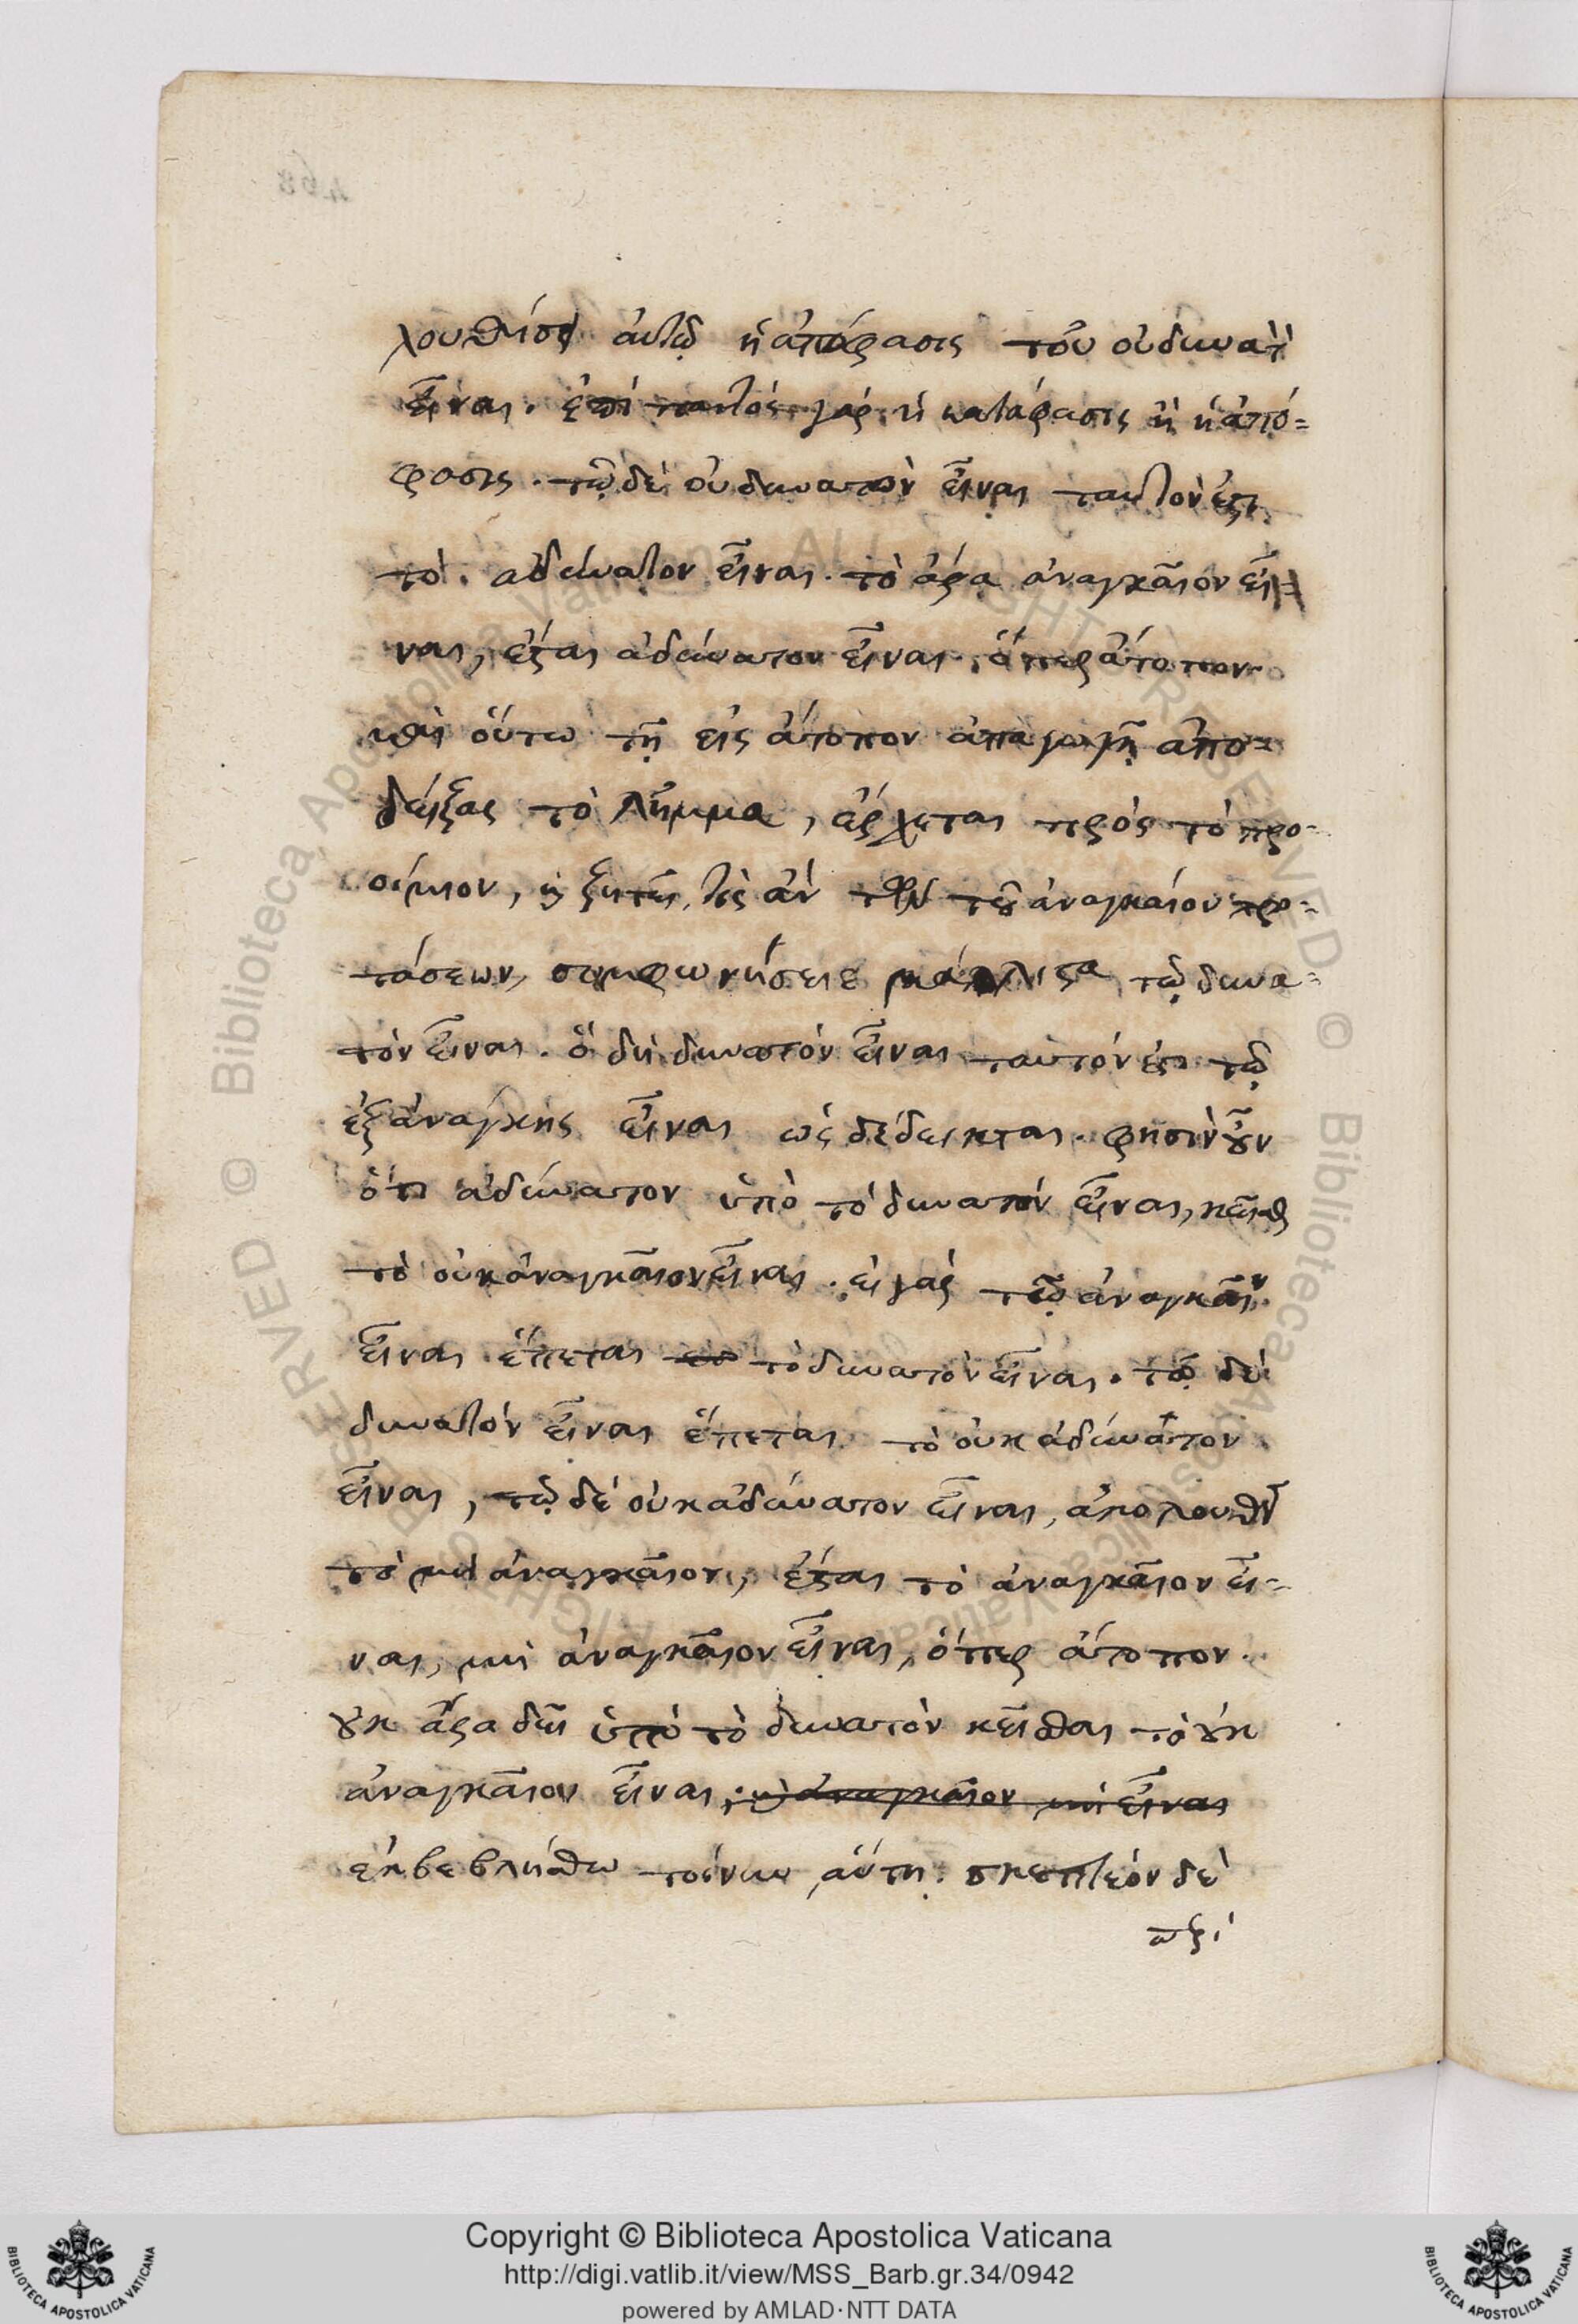 λουθήσει αὐτῷ ἡ ἀπόφασις τοῦ οὐ δυνατὸν
εἶναι. ἐπὶ παντὸς γὰρ ἡ κατάφασις ἢ ἡ ἀπό=
φασις. τῷ δὲ οὐ δυνατὸν εἶναι ταυτὸν ἐστι
τὸ ἀδύνατον εἶναι. τὸ ἄρα ἀναγκαῖον εἶ=
ναι, ἔσται ἀδύνατον εἶναι. ὅπερ ἄτοπον.
καὶ οὕτω τῇ εἰς ἄτοπον ἀπαγωγῇ ἀπο=
δείξας τὸ λῆμμα, ἄρχεται πρὸς τὸ προ-
οίμιον, καὶ ζητεῖ, τὶς ἂν τῶν τοῦ ἀναγκαίου προ-
τάσεων, συμφωνήσειε μάλιστα τῷ δυνα=
τὸν εἶναι. ὃ δὴ δυνατὸν εἶναι ταυτόν ἐστι τῷ
ἐξ ἀνάγκης εἶναι ὡς δέδεικται. φησὶν οὖν
ὅτι ἀδύνατον ὑπὸ τὸ δυνατὸν εἶναι, κεῖσθαι
τὸ οὐκ ἀναγκαῖον εἶναι. εἰ γὰρ τῷ ἀναγκαῖον
εἶναι ἕπεται τὸ δυνατὸν εἶναι. τῷ δὲ
δυνατὸν εἶναι ἕπεται τὸ οὐκ ἀδύνατον
εἶναι, τῷ δὲ οὐκ ἀδύνατον εἶναι, ἀκολουθεῖ
τὸ μὴ ἀναγκαῖον, ἔσται τὸ ἀναγκαῖον εἶ-
ναι, μὴ ἀναγκαῖον εἶναι, ὅπερ ἄτοπον.
οὐκ ἄρα δεῖ ὑπὸ τὸ δυνατὸν κεῖσθαι τὸ οὐκ
ἀναγκαῖον εἶναι, καὶ ἀναγκαῖον μὴ εἶναι
ἐκβεβλήσθω τοίνυν αὕτη. σκεπτέον δὲ
περὶ
Copyright © Biblioteca Apostolica Vaticana
http://digi.vatlib.it/view/MSS_Barb.gr.34/0942
powered by AMLAD·NTT DATA